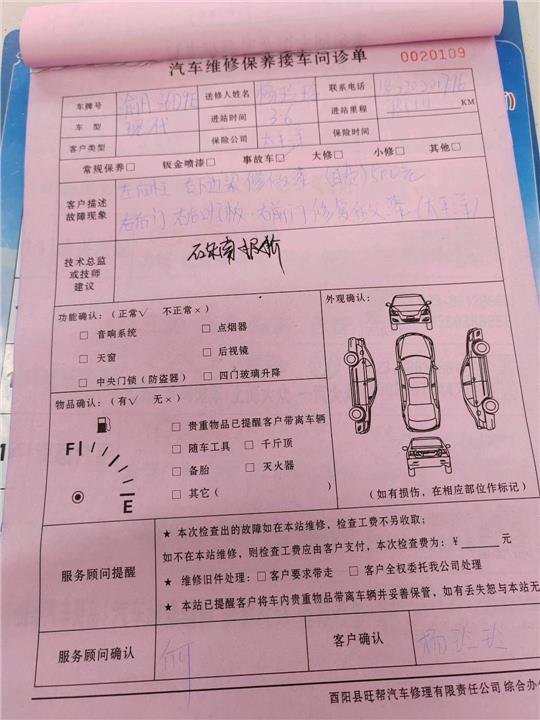 汽车维修保养接车问诊单 0020109
车牌号 送修人姓名 联系电话
车 型 现代 进站时间 3.6 进站里程 KM
客户类型 保险公司 太平洋 保险时间
常规保养□ 钣金喷漆□ 事故车□ 大修□ 小修□ 其他□
客户描述
故障现象
右后门 右前门
技术总监
或技师
建议
功能确认:(正常√ 不正常×)
□ 音响系统 □ 点烟器
□ 天窗 □ 后视镜
□ 中央门锁(防盗器) □ 四门玻璃升降
外观确认:
(如有损伤,在相应部位作标记)
物品确认:(有√ 无×)
F
E
□ 贵重物品已提醒客户带离车辆
□ 随车工具 □ 千斤顶
□ 备胎 □ 灭火器
□ 其它(
服务顾问提醒
★ 本次检查出的故障如在本站维修,检查工费不另收取;
如不在本站维修,则检查工费应由客户支付,本次检查费为:¥ 元
★ 维修旧件处理:□ 客户要求带走 □ 客户全权委托我公司处理
★ 本站已提醒客户将车内贵重物品带离车辆并妥善保管,如有丢失恕与本站无
服务顾问确认 何 客户确认
酉阳县旺帮汽车修理有限责任公司 综合办